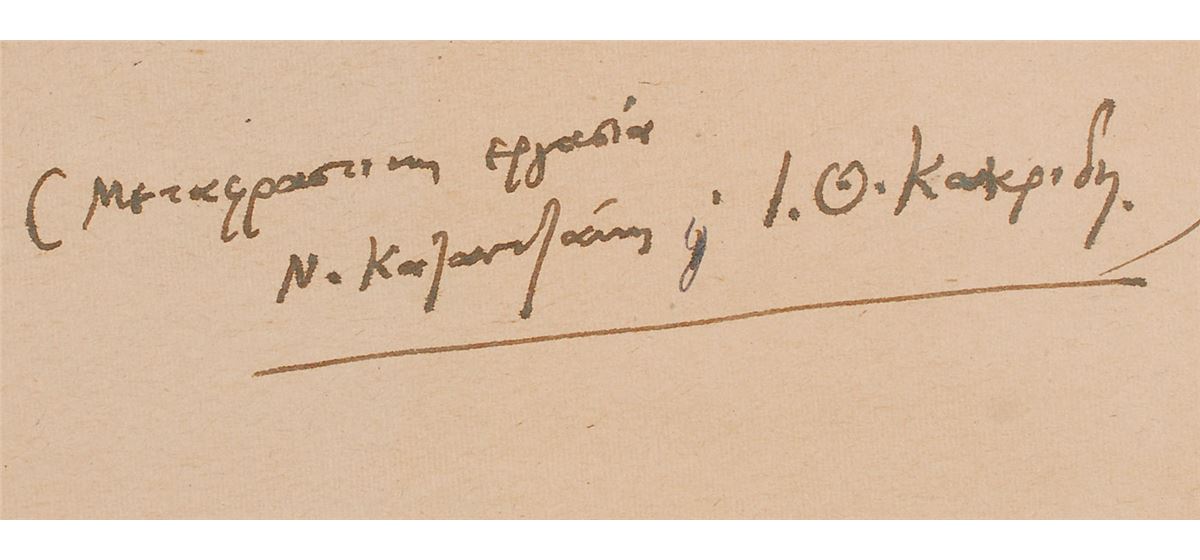 (Μεταφραστικη εργασία
Ν. Καζαντζάκη ϗ Ι. Θ. Κακριδη.